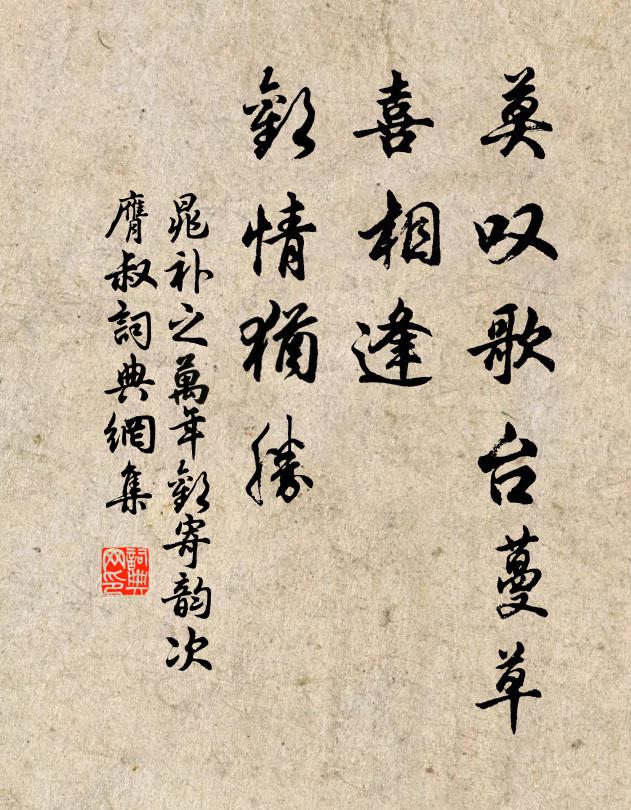 莫叹歌台蔓草
喜相逢
歡情猶勝
晁补之萬年歡寄韵次
膺叔詞典網集
詞典
网印